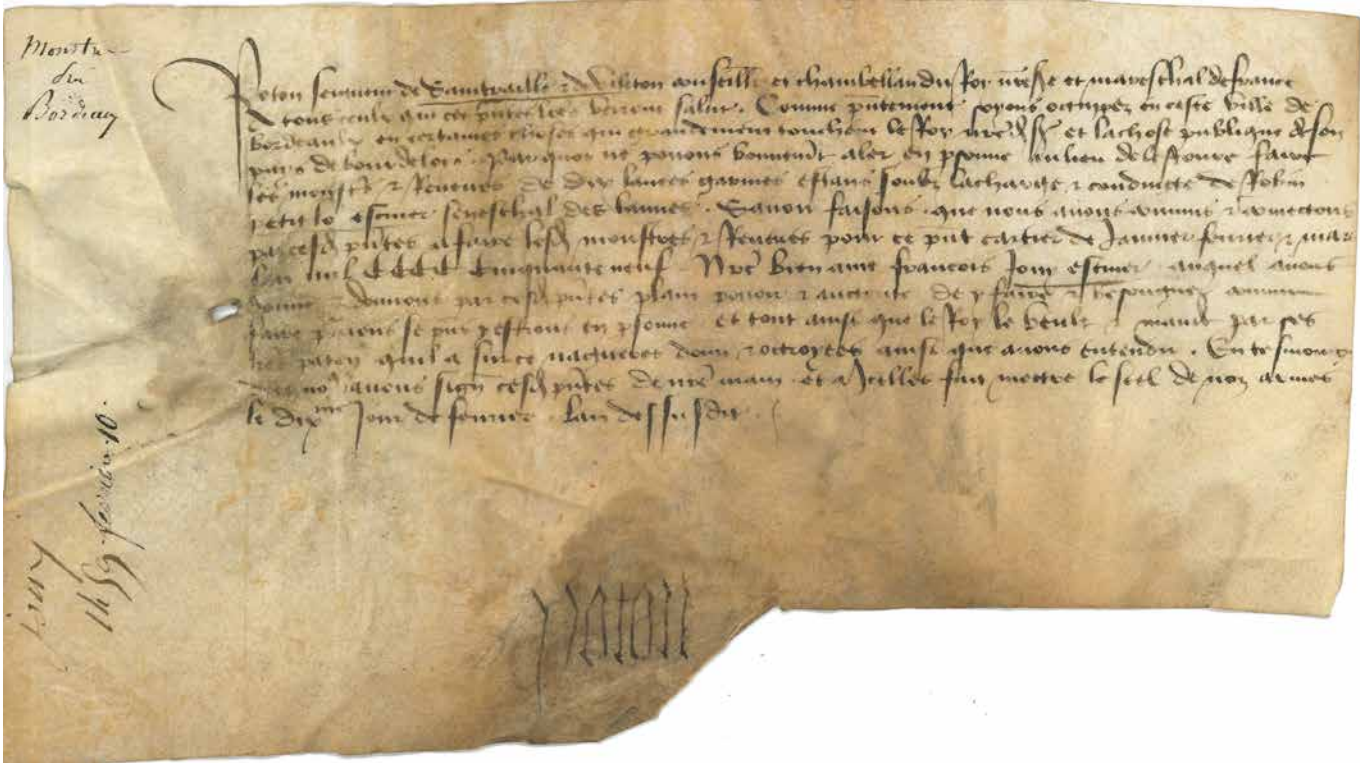 Monstre
du
Bordeaux
Poton seigneur de Saintraille & de conseill et chambellan du Roy nre sr et mareschal de france
A tous ceulx qui ces pntes lres verront salut. Comme pntement soyons occuppez en ceste ville de
bordeaulx en certaines choses qui grandement touchent le Roy nre d sr et la chose publique de son
pais de bourdelois. Par quoy ne povons bonnemt aler en psonne au lieu de lestoure faire
les monstres & Reveues de dix lances garnies estans soubz la charge & conduicte de Robin
petit lo escuier seneschal des lannes. Savoir faisons que nous avons commis & commectons
par cesd pntes a faire lesd monstres & Reveues pour ce pnt cartier de Janvier fevrier & mars
lan mil CCCC Cinquante neuf. Nre bien ame francois Jour escuier auquel avons
donne & donnons par cesd pntes plain povoir & auctorite de y faire & besongner comme
faire se pnt y estions en psonne et tout ainsi que le Roy le veult & mande par ses
lres paten quil a sur ce nagueres donn & octroyees ainsi que avons entendu. En tesmoing
avons sign cesd pntes de nre main et a icelles fait mectre le seel de noz armes
le dixme Jour de fevrier. Lan dessusdit.
poton
1459 fevrier 10.